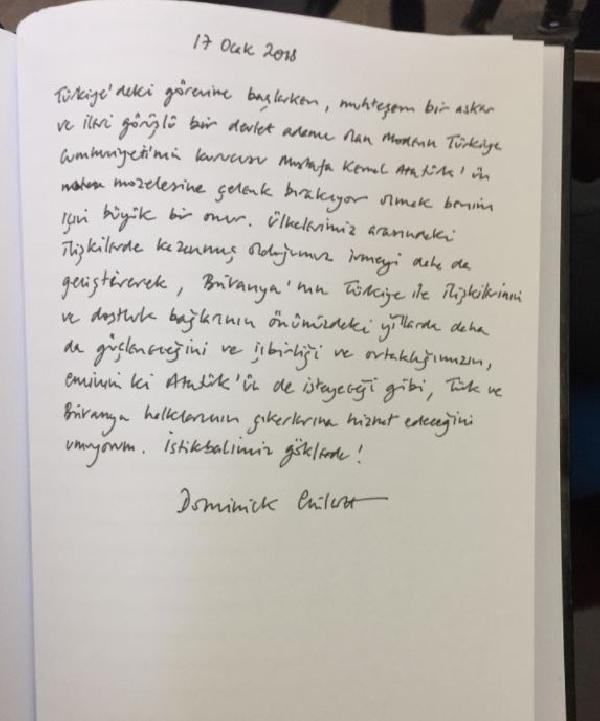 17 Ocak 2018
Türkiye'deki görevime başlarken, muhteşem bir asker
ve ileri görüşlü bir devlet adamı olan Modern Türkiye
Cumhuriyeti'nin kurucusu Mustafa Kemal Atatürk'ün
mozolesine çelenk bırakıyor olmak benim
için büyük bir onur. Ülkelerimiz arasındaki
ilişkilerde kazanmış olduğumuz ivmeyi daha da
geliştirerek, Britanya'nın Türkiye ile ilişkilerinin
ve dostluk bağlarının önümüzdeki yıllarda daha
da güçleneceğini ve işbirliği ve ortaklığımızın,
eminim ki Atatürk'ün de isteyeceği gibi, Türk ve
Britanya halklarının çıkarlarına hizmet edeceğini
umuyorum. İstikbalimiz göklerde!
Dominick Chilcott